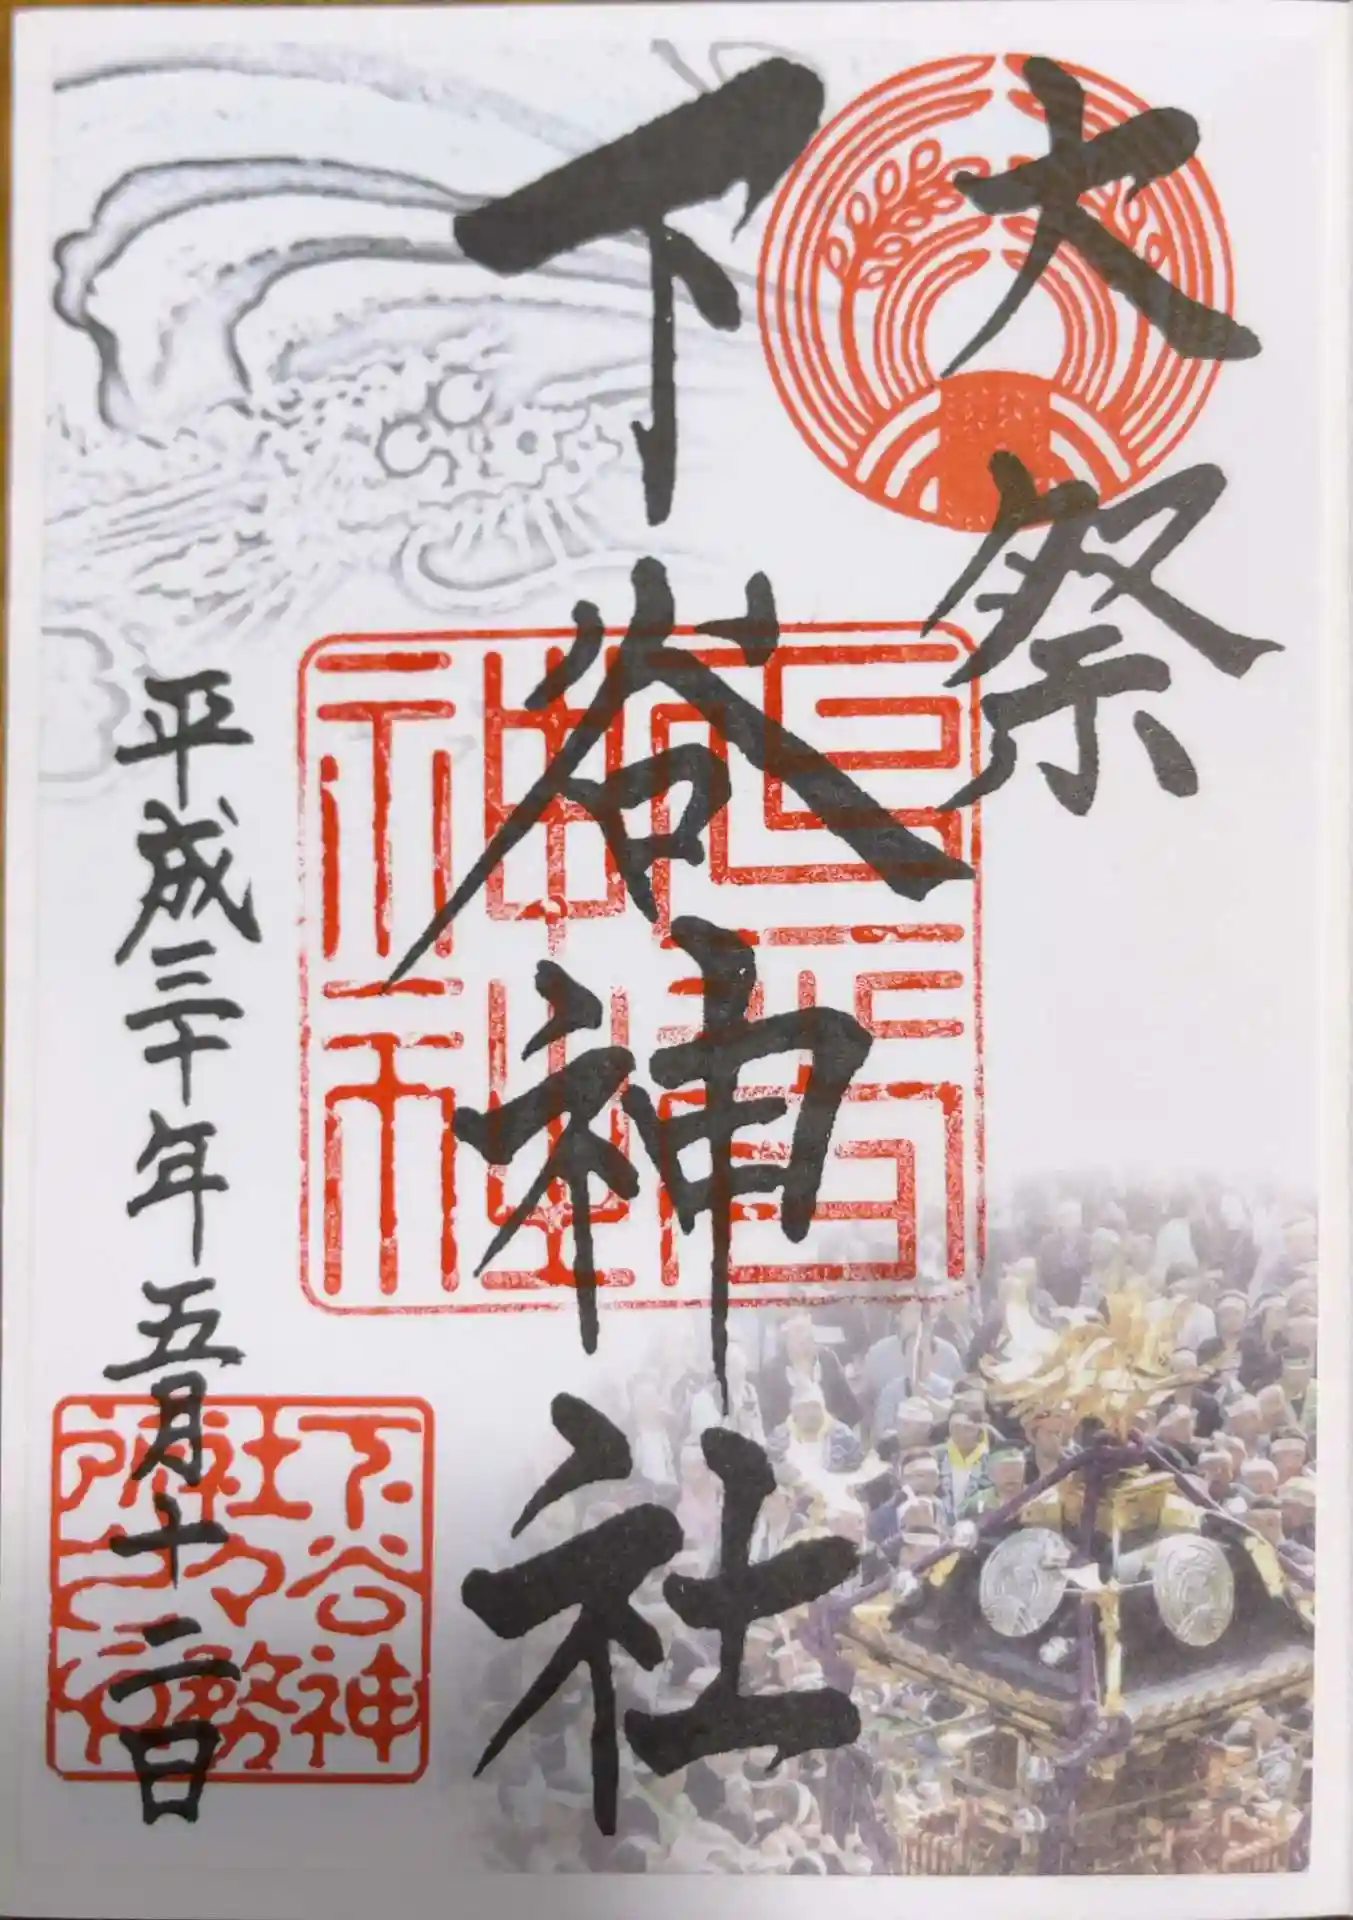 大祭
下谷神社
平成三十年五月十二日
下谷神
社々務
所之印